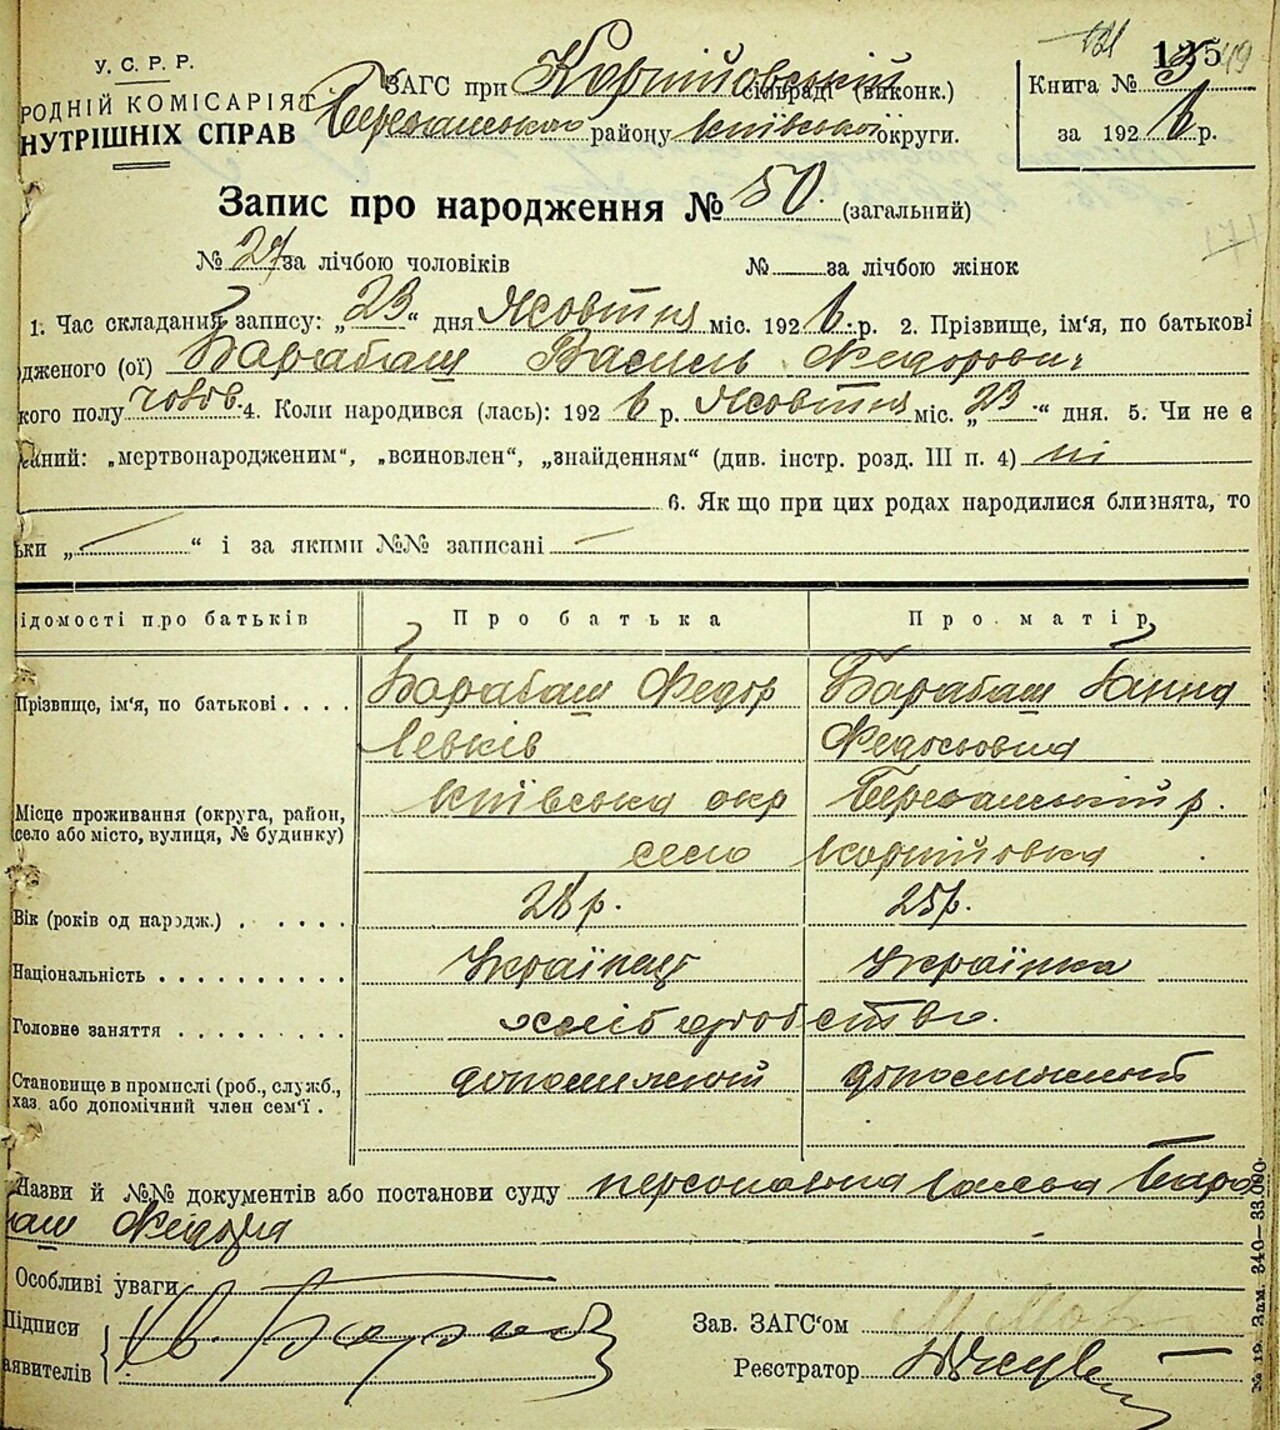 135
У. С. Р. Р.
РОДНІЙ КОМІСАРІЯТ
НУТРІШНІХ СПРАВ
ЗАГС при Корніївській сільраді (виконк.)
району Київської округи.
Книга №
за 1926 р.
Запис про народження № 50. (загальний)
№ 27 за лічбою чоловіків № за лічбою жінок
1. Час складання запису: „23“ дня Жовтня міс. 1926 р. 2. Прізвище, ім‘я, по батькові
дженого (ої) Барабаш Василь Федорович
кого полу чолов. 4. Коли народився (лась): 1926 р. Жовтня міс. „23“ дня. 5. Чи не є
аний: „мертвонародженим“, „всиновлен“, „знайденням“ (див. інстр. розд. III п. 4) ні
6. Як що при цих родах народилися близнята, то
ьки „ “ і за якими №№ записані
ідомості про батьків Про батька Про матір
Прізвище, ім‘я, по батькові . . . . Барабаш Федор Барабаш Ганна
Левків Федосіовна
Місце проживання (округа, район, село або місто, вулиця, № будинку) Київська окр Березанський р.
село Корніївка
Вік (років од народж.) . . . . . 28 р. 25 р.
Національність . . . . . . . . . . Українець Українка
Головне заняття . . . . . . . . . хліборобство.
Становище в промислі (роб., служб., хаз. або допомічний член сем‘ї .
Назви й №№ документів або постанови суду персональна Бара
баш Федора
Особливі уваги
Підписи
аявителів
Зав. ЗАГС‘ом
Реєстратор
№ 19. Зам. 340—33.000.